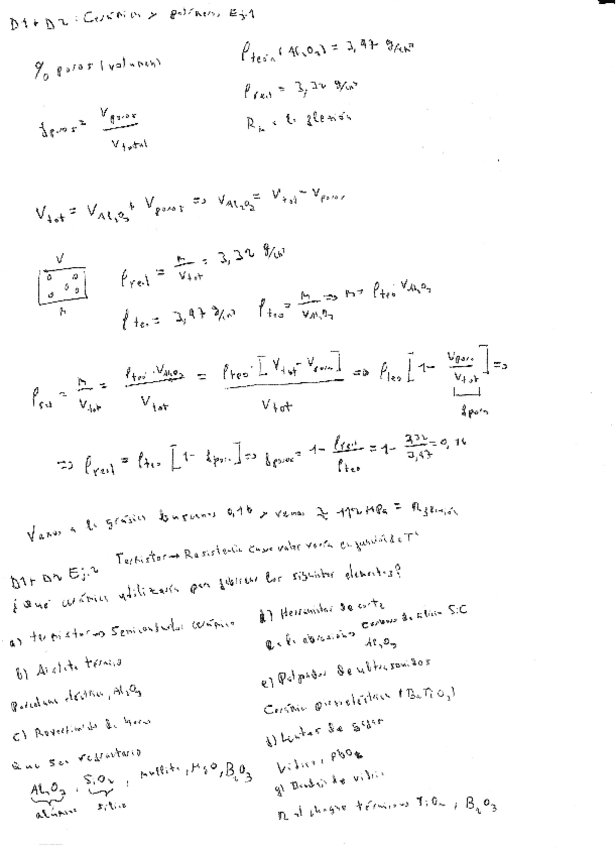 D1+D2: Cerámicos y polímeros, Ej.1
% poros (volumen)
ρteórica (Al2O3) = 3,97 g/cm³
ρreal = 3,32 g/cm³
R a la flexión
fporos = Vporos / Vtotal
Vtot = VAl2O3 + Vporos => VAl2O3 = Vtot - Vporos
V
m
ρreal = m / Vtot = 3,32 g/cm³
ρteo = 3,97 g/cm³ ρteo = m / VAl2O3 => m = ρteo · VAl2O3
ρreal = m / Vtot = ρteo · VAl2O3 / Vtot = ρteo · [Vtot - Vporos] / Vtot => ρteo [1 - Vporos / Vtot] =>
fporos
=> ρreal = ρteo [1 - fporos] => fporos = 1 - ρreal / ρteo = 1 - 3,32 / 3,97 = 0,16
Vamos a la gráfica buscamos 0,16 y vemos ≈ MPa = Rflexión
D1+D2 Ej.2 Termistor → Resistencia cuyo valor varía en función de Tª
¿Qué cerámico utilizaría para fabricar los siguientes elementos?
a) termistor → Semiconductor cerámico
b) Aislante térmico
Porcelana eléctrica, Al2O3
c) Revestimiento de hornos
Que sea refractario
Al2O3, SiO2, mullita, MgO, B2O3
alúmina sílice
d) Herramientas de corte
R a la abrasión → Carburo de silicio SiC
Al2O3
e) Palpador de ultrasonidos
Cerámica piezoeléctrica (BaTiO3)
f) Lentes de gafas
Vidrio, PbO2
g) de vidrio
R al choque térmico → TiO2, B2O3